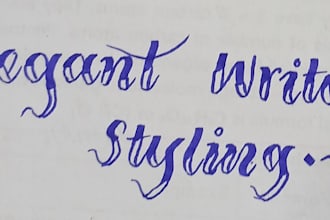 egant Write
Styling.